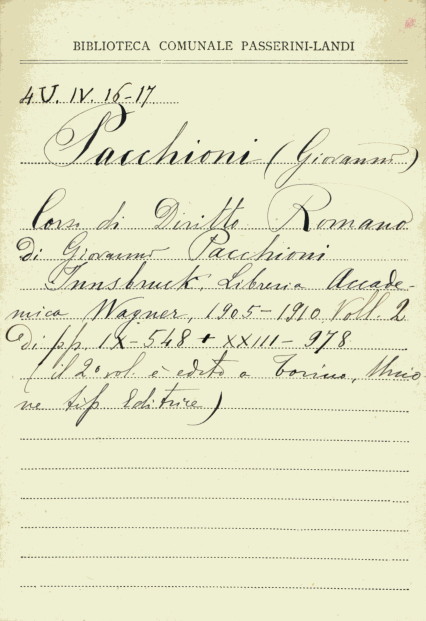 BIBLIOTECA COMUNALE PASSERINI-LANDI
4U. IV. 16-17
Pacchioni (Giovanni)
Corso di Diritto Romano
Di Giovanni Pacchioni
Innsbruck, Libreria Accade-
mica Wagner, 1905-1910 Voll. 2
Di pp. IX-548 + XXIII-978
(il 2º vol. è edito a Torino, Unio-
ne tip Editrice)